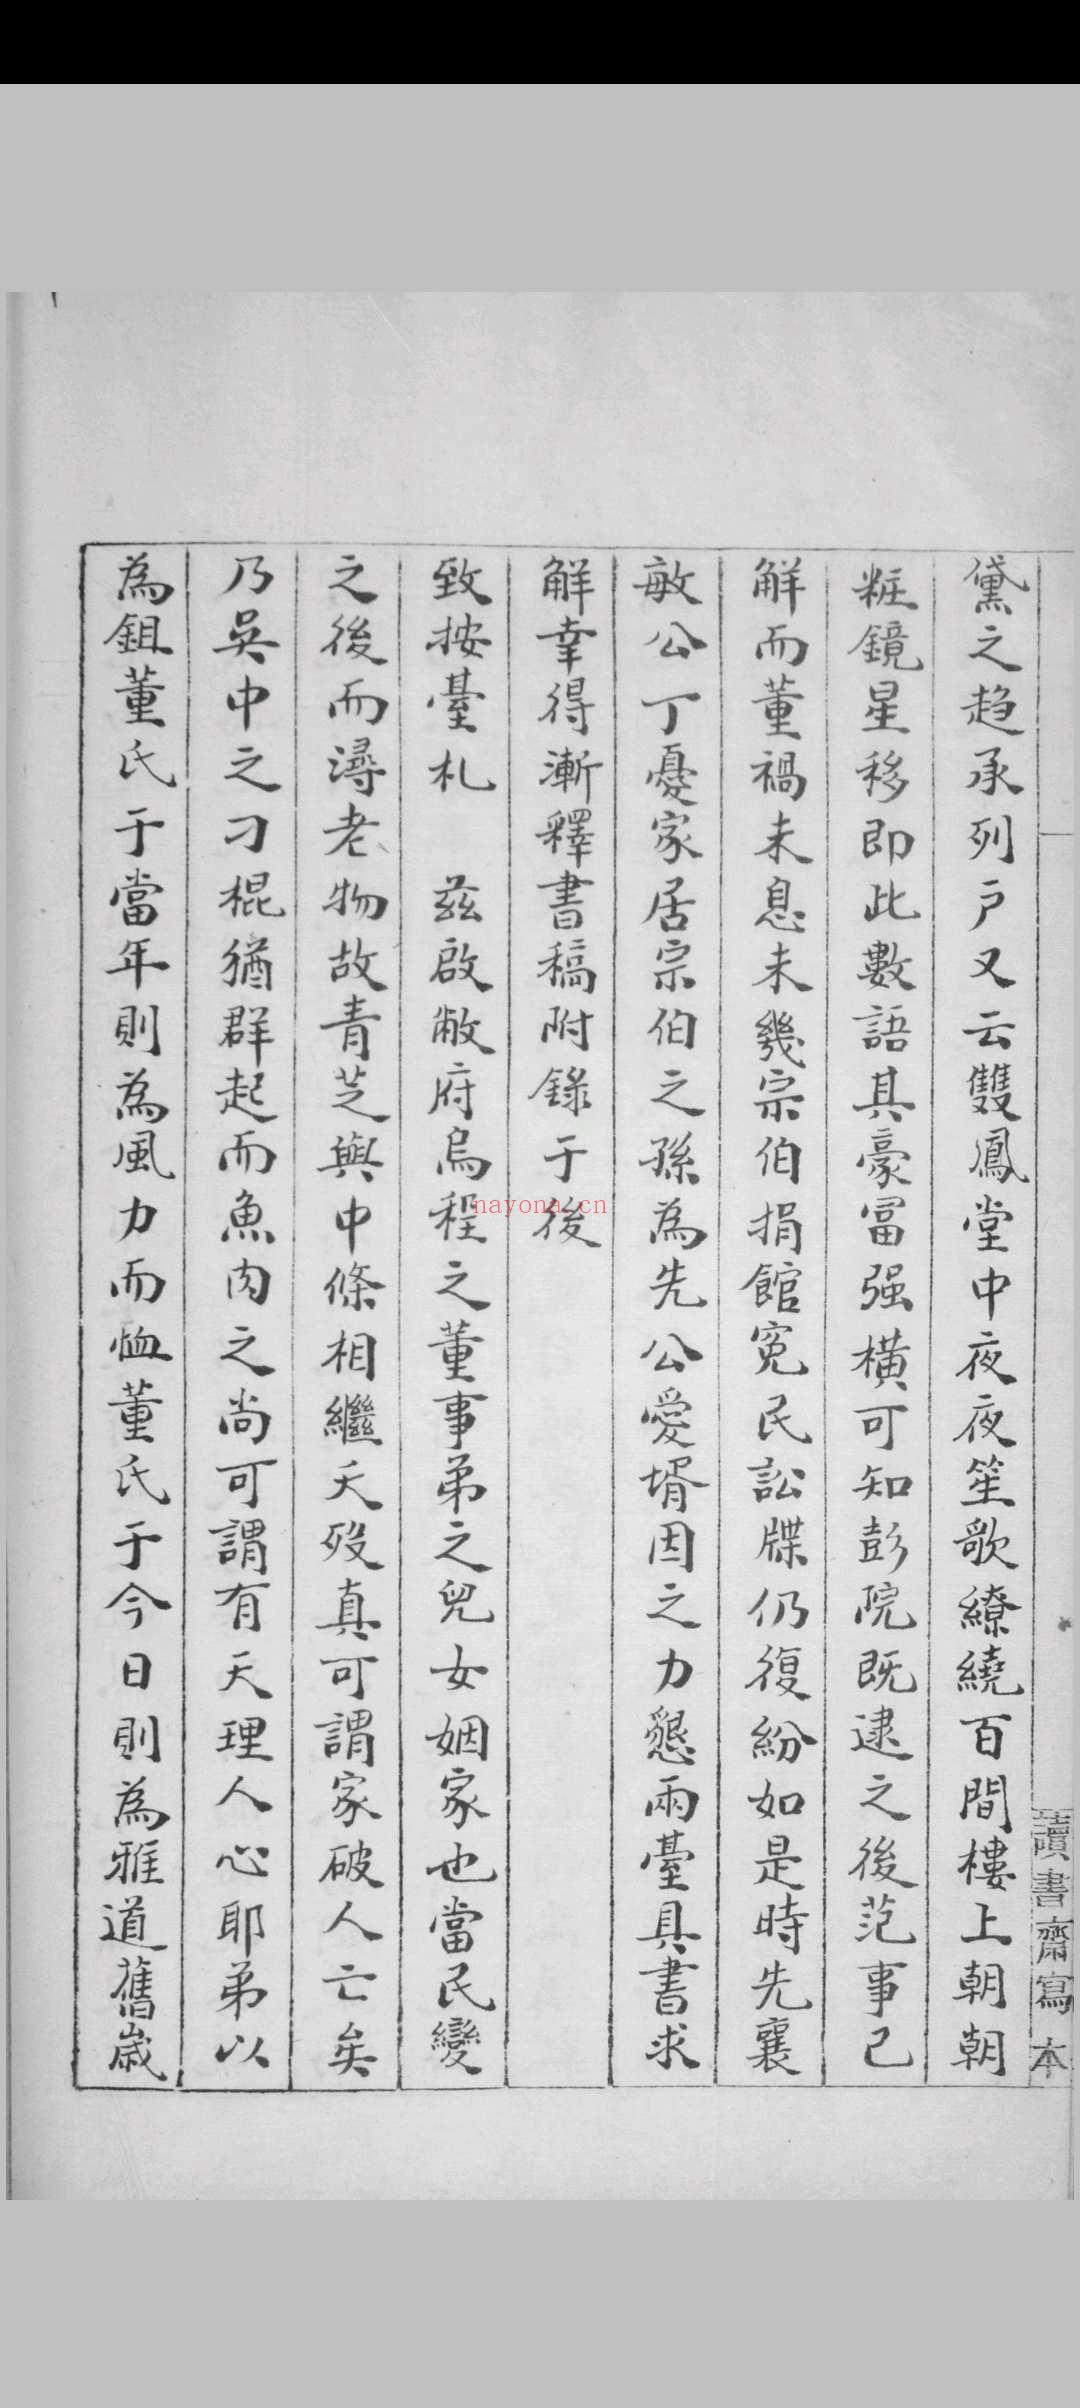 黛之趋承列户又云雙鳳堂中夜夜笙歌繚繞百間樓上朝朝
粧鏡星移即此數語其豪冨强横可知彭院既逮之後范事已
解而董禍未息未幾宗伯捐館寃民訟牒仍復紛如是時先襄
敏公丁憂家居宗伯之孫為先公愛壻因之力懇兩臺具書求
解幸得漸釋書稿附錄于後
致按臺札　兹啟敝府烏程之董事弟之兒女姻家也當民變
之後而潯老物故青芝與中條相繼夭殁真可謂家破人亡矣
乃吳中之刁棍猶群起而魚肉之尚可謂有天理人心耶弟以
為鉏董氏于當年則為風力而恤董氏于今日則為雅道舊歲
讀書齋寫本
nayona.cn